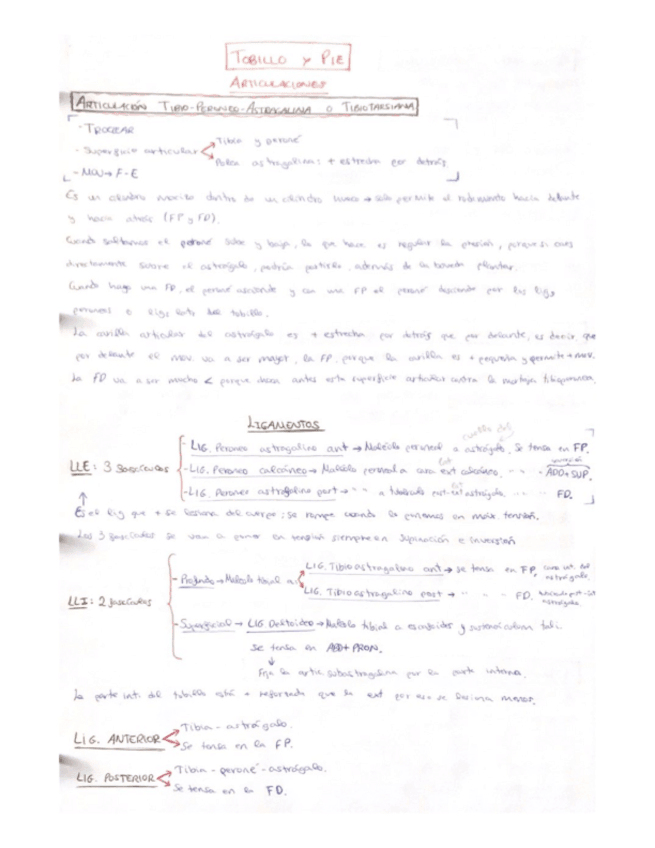 TOBILLO Y PIE
ARTICULACIONES
ARTICULACIÓN TIBIO-PERONEO-ASTRAGALINA O TIBIOTARSIANA
- TROCLEAR
- Superficie articular Tibia y peroné
Polea astragalina: + estrecha por detrás
- MOV → F-E
Es un cilindro macizo dentro de un cilindro hueco → solo permite el rodamiento hacia delante
y hacia atrás (FP y FD).
Cuando saltamos el peroné sube y baja, lo que hace es regular la presión, porque si caes
directamente sobre el astrágalo, podría partirlo, además de la bóveda plantar.
Cuando hago una FD, el peroné asciende y con una FP el peroné desciende por los ligs
peroneos o ligs lats del tobillo.
La carilla articular del astrágalo es + estrecha por detrás que por delante, es decir, que
por delante el mov. va a ser mayor, la FP, porque la carilla es + pequeña y permite + mov.
La FD va a ser mucho < porque choca antes esta superficie articular contra la mortaja tibioperonea.
LIGAMENTOS
LLE: 3 fascículos
- LIG. Peroneo astragalino ant → Maléolo peroneal a astrágalo. Se tensa en FP.
- LIG. Peroneo calcáneo → Maléolo peroneal a cara ext calcáneo. " " ADD + SUP.
- LIG. Peroneo astragalino post → " " a tubérculo post-ext astrágalo. " " FD.
Es el lig que + se lesiona del cuerpo: se rompe cuando lo ponemos en máx. tensión.
Los 3 fascículos se van a poner en tensión siempre en supinación e inversión
LLI: 2 fascículos
- Profundo → Maléolo tibial a: LIG. Tibioastragalino ant → se tensa en FP, cara int. del astrágalo.
LIG. Tibioastragalino post → " " FD.
- Superficial → LIG Deltoideo → Maléolo tibial a escafoides y sustentaculum tali.
Se tensa en ABD + PRON.
Fija la artic. subastragalina por la parte interna.
La parte int. del tobillo está + reforzada que la ext por eso se lesiona menos.
LIG. ANTERIOR Tibia - astrágalo.
Se tensa en la FP.
LIG. POSTERIOR Tibia - peroné - astrágalo.
Se tensa en la FD.